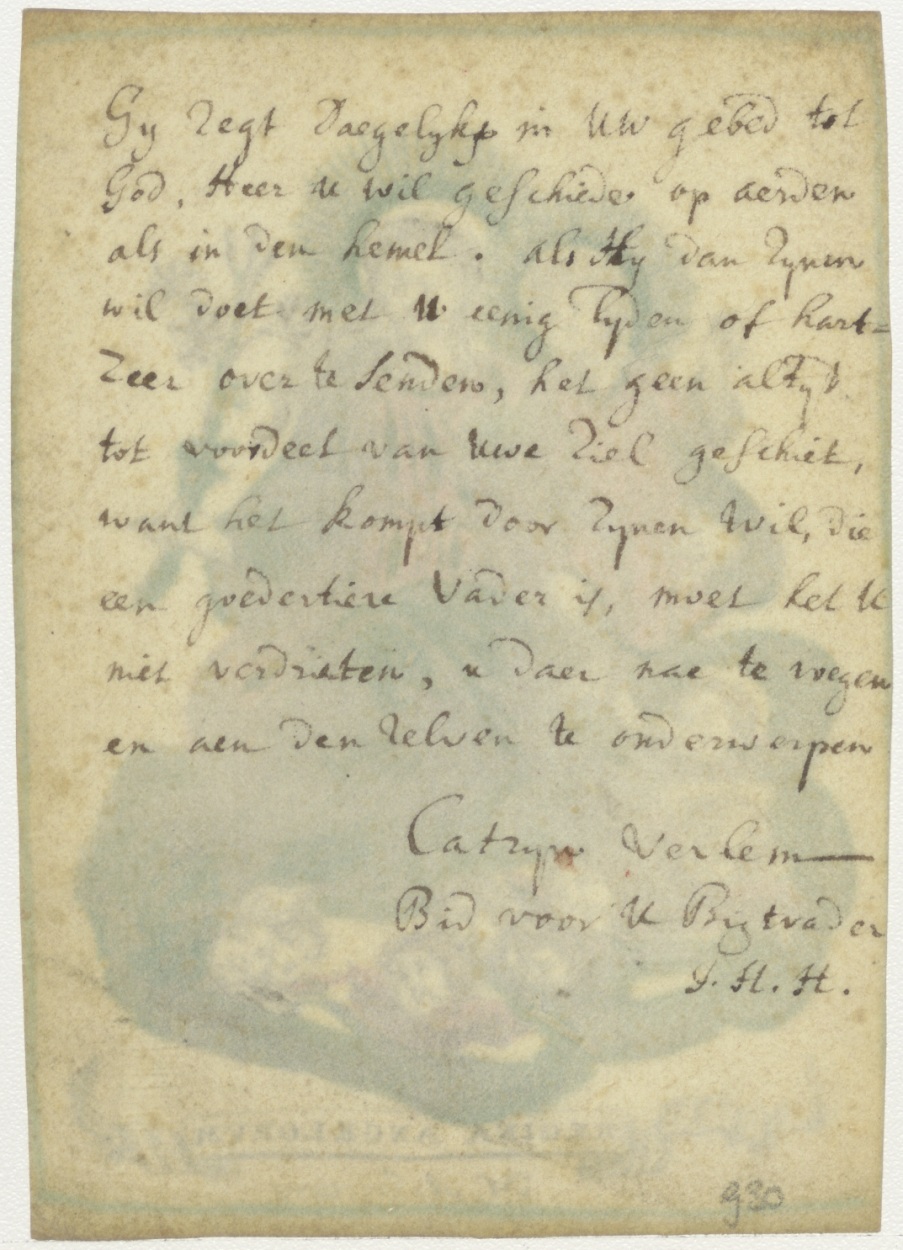 Gy zegt Daegelyks in UW gebed tot
God, Heer u wil geschiede op aerden
als in den hemel. als Hy dan zynen
wil doet met U eenig lyden of hart=
zeer over te senden, het geen altyt
tot voordeel van Uwe ziel geschiet,
want het kompt door zynen Wil, die
een goedertiere Vader is, moet het U
niet verdrieten, u daer nae te voegen
en aen den zelven te onderwerpen
Catryn Verlem
Bid voor U Bigtvader
J. H. H.
REGINA ANGELORUM
930